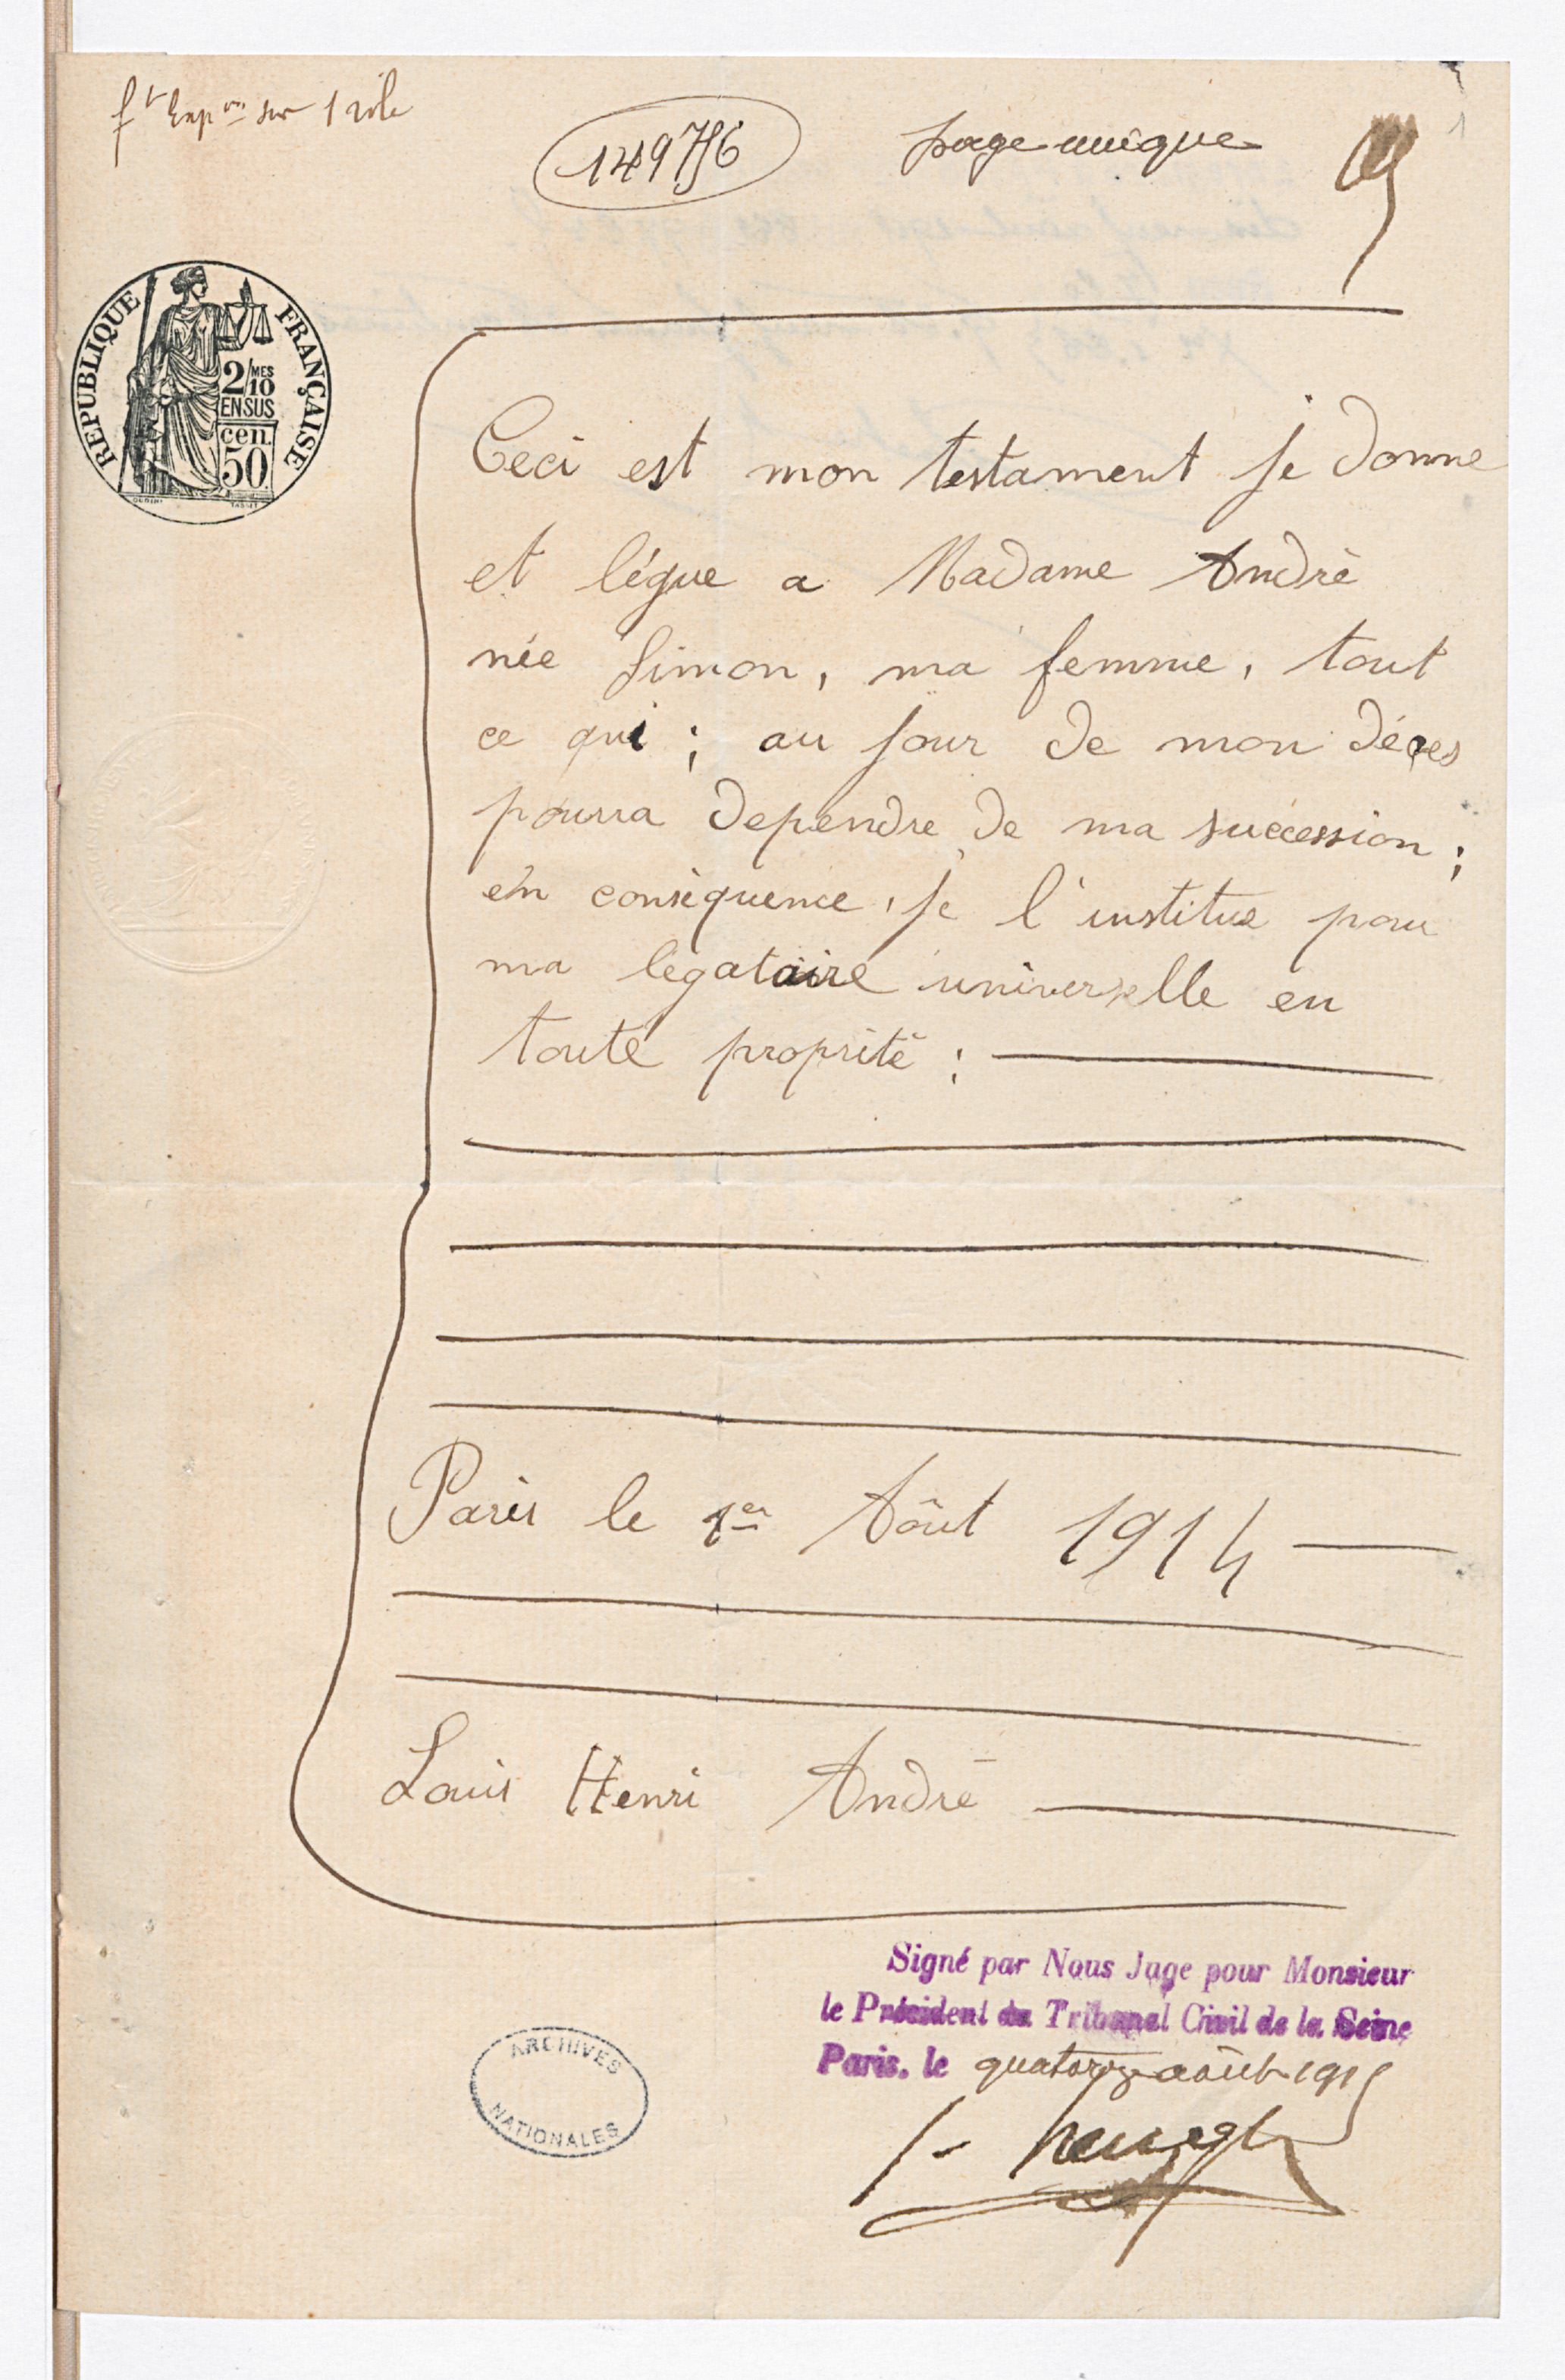 page unique
1
REPUBLIQUE FRANÇAISE
2/MES
10
EN SUS
cen.
50
Ceci est mon testament je donne
et légue a Madame André
née Simon, ma femme, tout
ce qui ; au jour de mon décès
pourra dependre de ma succession ;
en conséquence, je l'institue pour
ma légataire universelle en
toute proprité ;
Paris le 1er Aôut 1914
Louis Henri André
Signé par Nous Juge pour Monsieur
le Président du Tribunal Civil de la Seine
Paris, le quatorze août 1915
ARCHIVES
NATIONALES